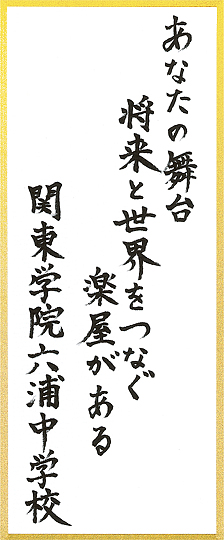 あなたの舞台
将来と世界をつなぐ
楽屋がある
関東学院六浦中学校